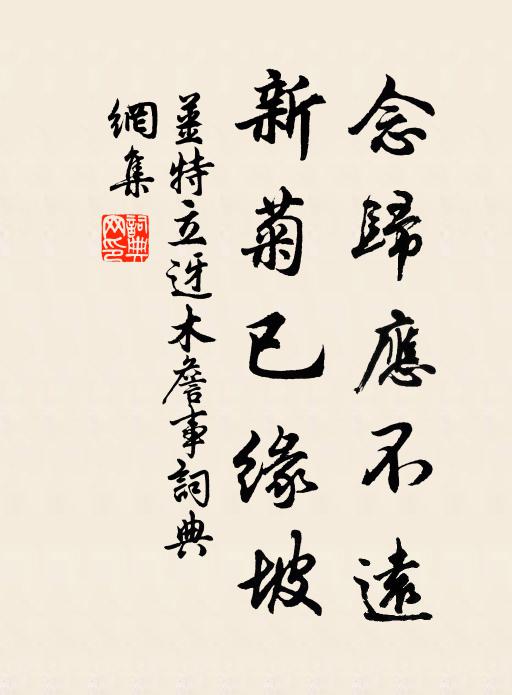 念歸應不遠
新菊已緣坡
薑特立迓木詹事詞典
網集
詞典
網印